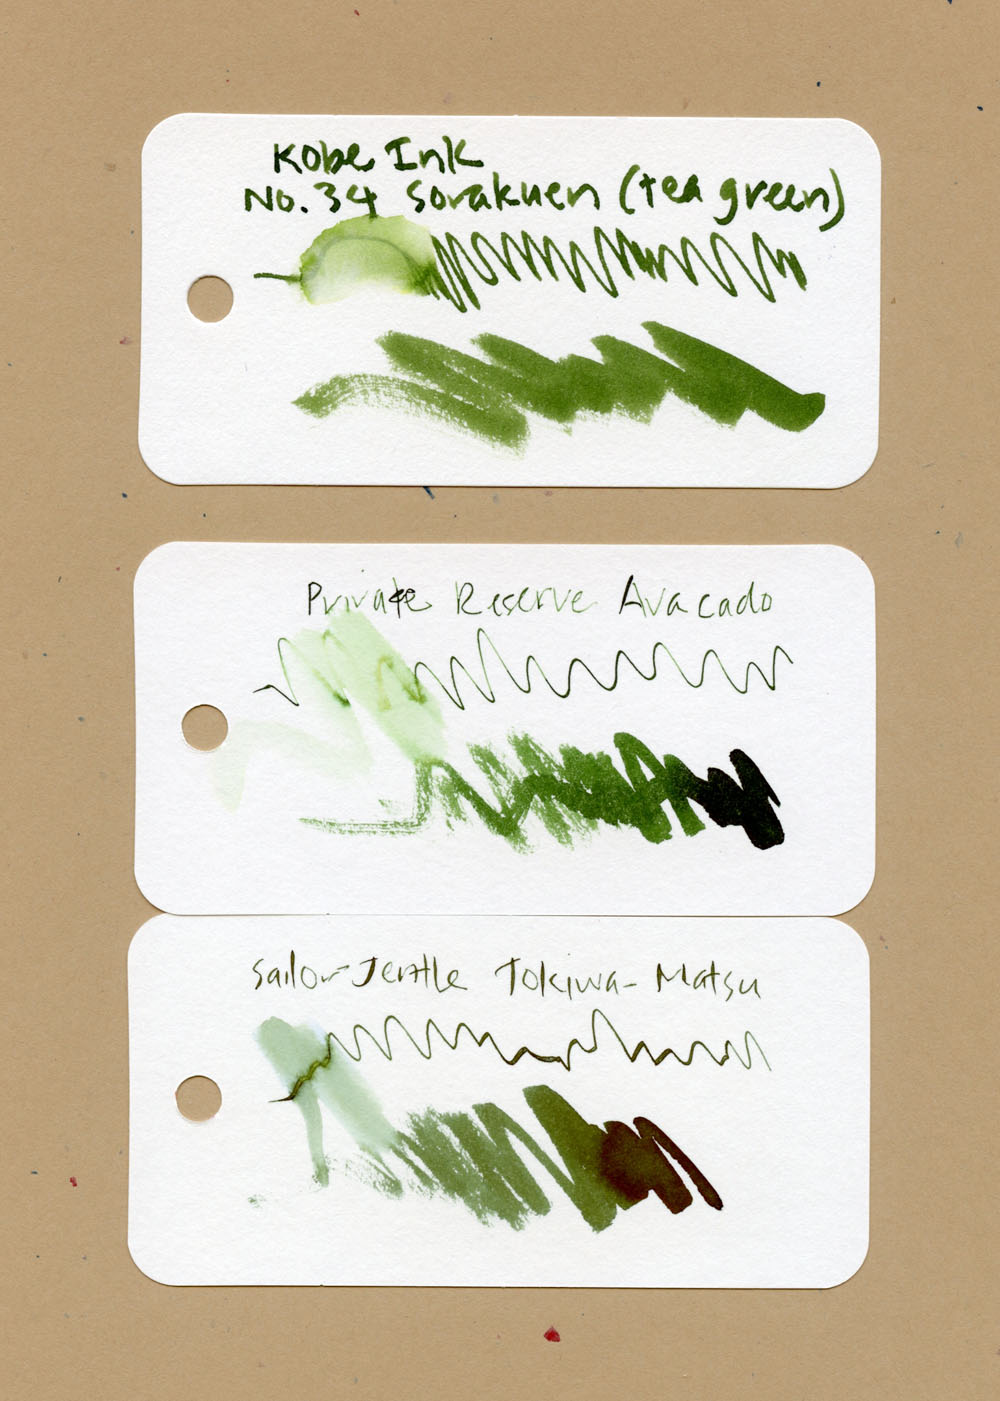 Kobe Ink
No. 34 Sorakuen (tea green)
Private Reserve Avacado
Sailor Jentle Tokiwa-Matsu